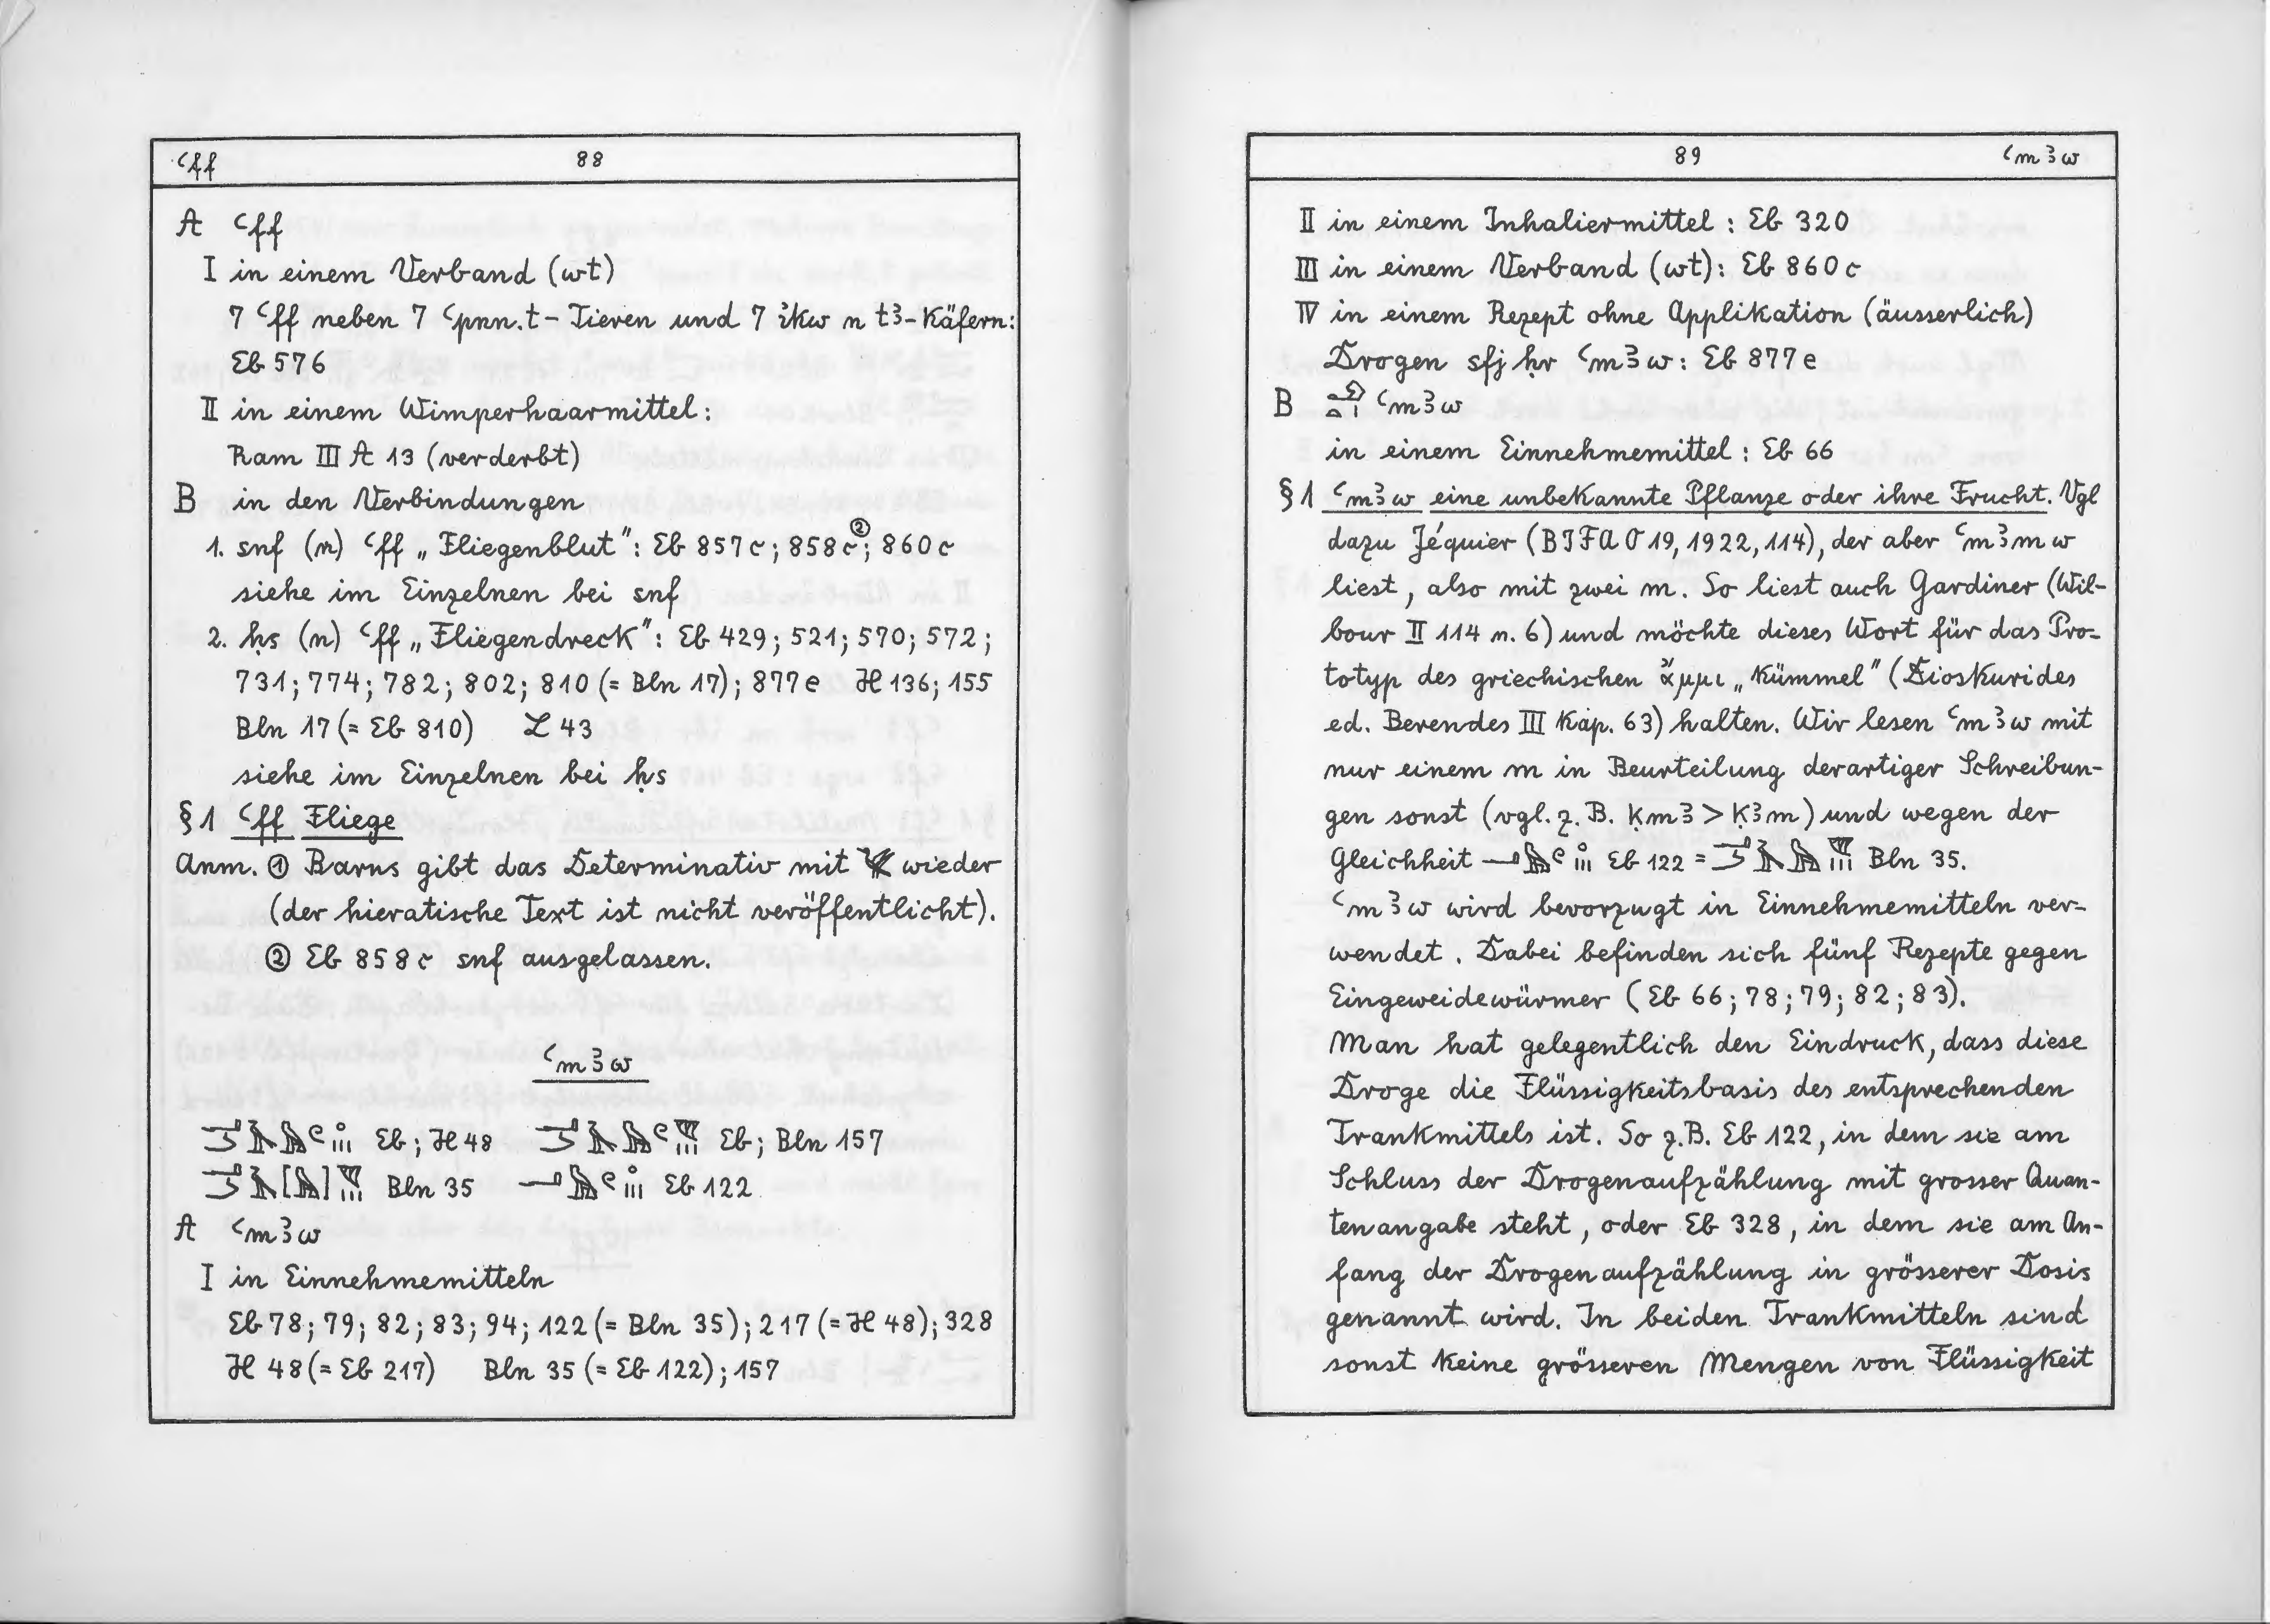 ꜥff 88
A ꜥff
I in einem Verband (wt)
7 ꜥff neben 7 ꜥpnn.t-Tieren und 7 ỉkw n tꜣ-Käfern:
Eb 576
II in einem Wimperhaarmittel:
Ram III A 13 (verderbt)
B in den Verbindungen
1. snf (n) ꜥff „Fliegenblut": Eb 857c; 858c②; 860c
siehe im Einzelnen bei snf
2. ḥs (n) ꜥff „Fliegendreck": Eb 429; 521; 570; 572;
731; 774; 782; 802; 810 (= Bln 17); 877e H 136; 155
Bln 17 (= Eb 810) L 43
siehe im Einzelnen bei ḥs
§1 ꜥff Fliege
Anm. ① Barns gibt das Determinativ mit wieder
(der hieratische Text ist nicht veröffentlicht).
② Eb 858c snf ausgelassen.
ꜥmꜣw
Eb; H 48 Eb; Bln 157
Bln 35 Eb 122
A ꜥmꜣw
I in Einnehmemitteln
Eb 78; 79; 82; 83; 94; 122 (= Bln 35); 217 (= H 48); 328
H 48 (= Eb 217) Bln 35 (= Eb 122); 157
89 ꜥmꜣw
II in einem Inhaliermittel: Eb 320
III in einem Verband (wt): Eb 860c
IV in einem Rezept ohne Applikation (äusserlich)
Drogen sfj ḥr ꜥmꜣw: Eb 877e
B ꜥmꜣw
in einem Einnehmemittel: Eb 66
§1 ꜥmꜣw eine unbekannte Pflanze oder ihre Frucht. Vgl
dazu Jéquier (BIFAO 19, 1922, 114), der aber ꜥmꜣmw
liest, also mit zwei m. So liest auch Gardiner (Wil-
bour II 114 n. 6) und möchte dieses Wort für das Pro-
totyp des griechischen ἄμμι „Kümmel" (Dioskurides
ed. Berendes III Kap. 63) halten. Wir lesen ꜥmꜣw mit
nur einem m in Beurteilung derartiger Schreibun-
gen sonst (vgl. z. B. ḳmꜣ > ḳꜣm) und wegen der
Gleichheit Eb 122 = Bln 35.
ꜥmꜣw wird bevorzugt in Einnehmemitteln ver-
wendet. Dabei befinden sich fünf Rezepte gegen
Eingeweidewürmer (Eb 66; 78; 79; 82; 83).
Man hat gelegentlich den Eindruck, dass diese
Droge die Flüssigkeitsbasis des entsprechenden
Trankmittels ist. So z.B. Eb 122, in dem sie am
Schluss der Drogenaufzählung mit grosser Quan-
tenangabe steht, oder Eb 328, in dem sie am An-
fang der Drogenaufzählung in grösserer Dosis
genannt wird. In beiden Trankmitteln sind
sonst keine grösseren Mengen von Flüssigkeit